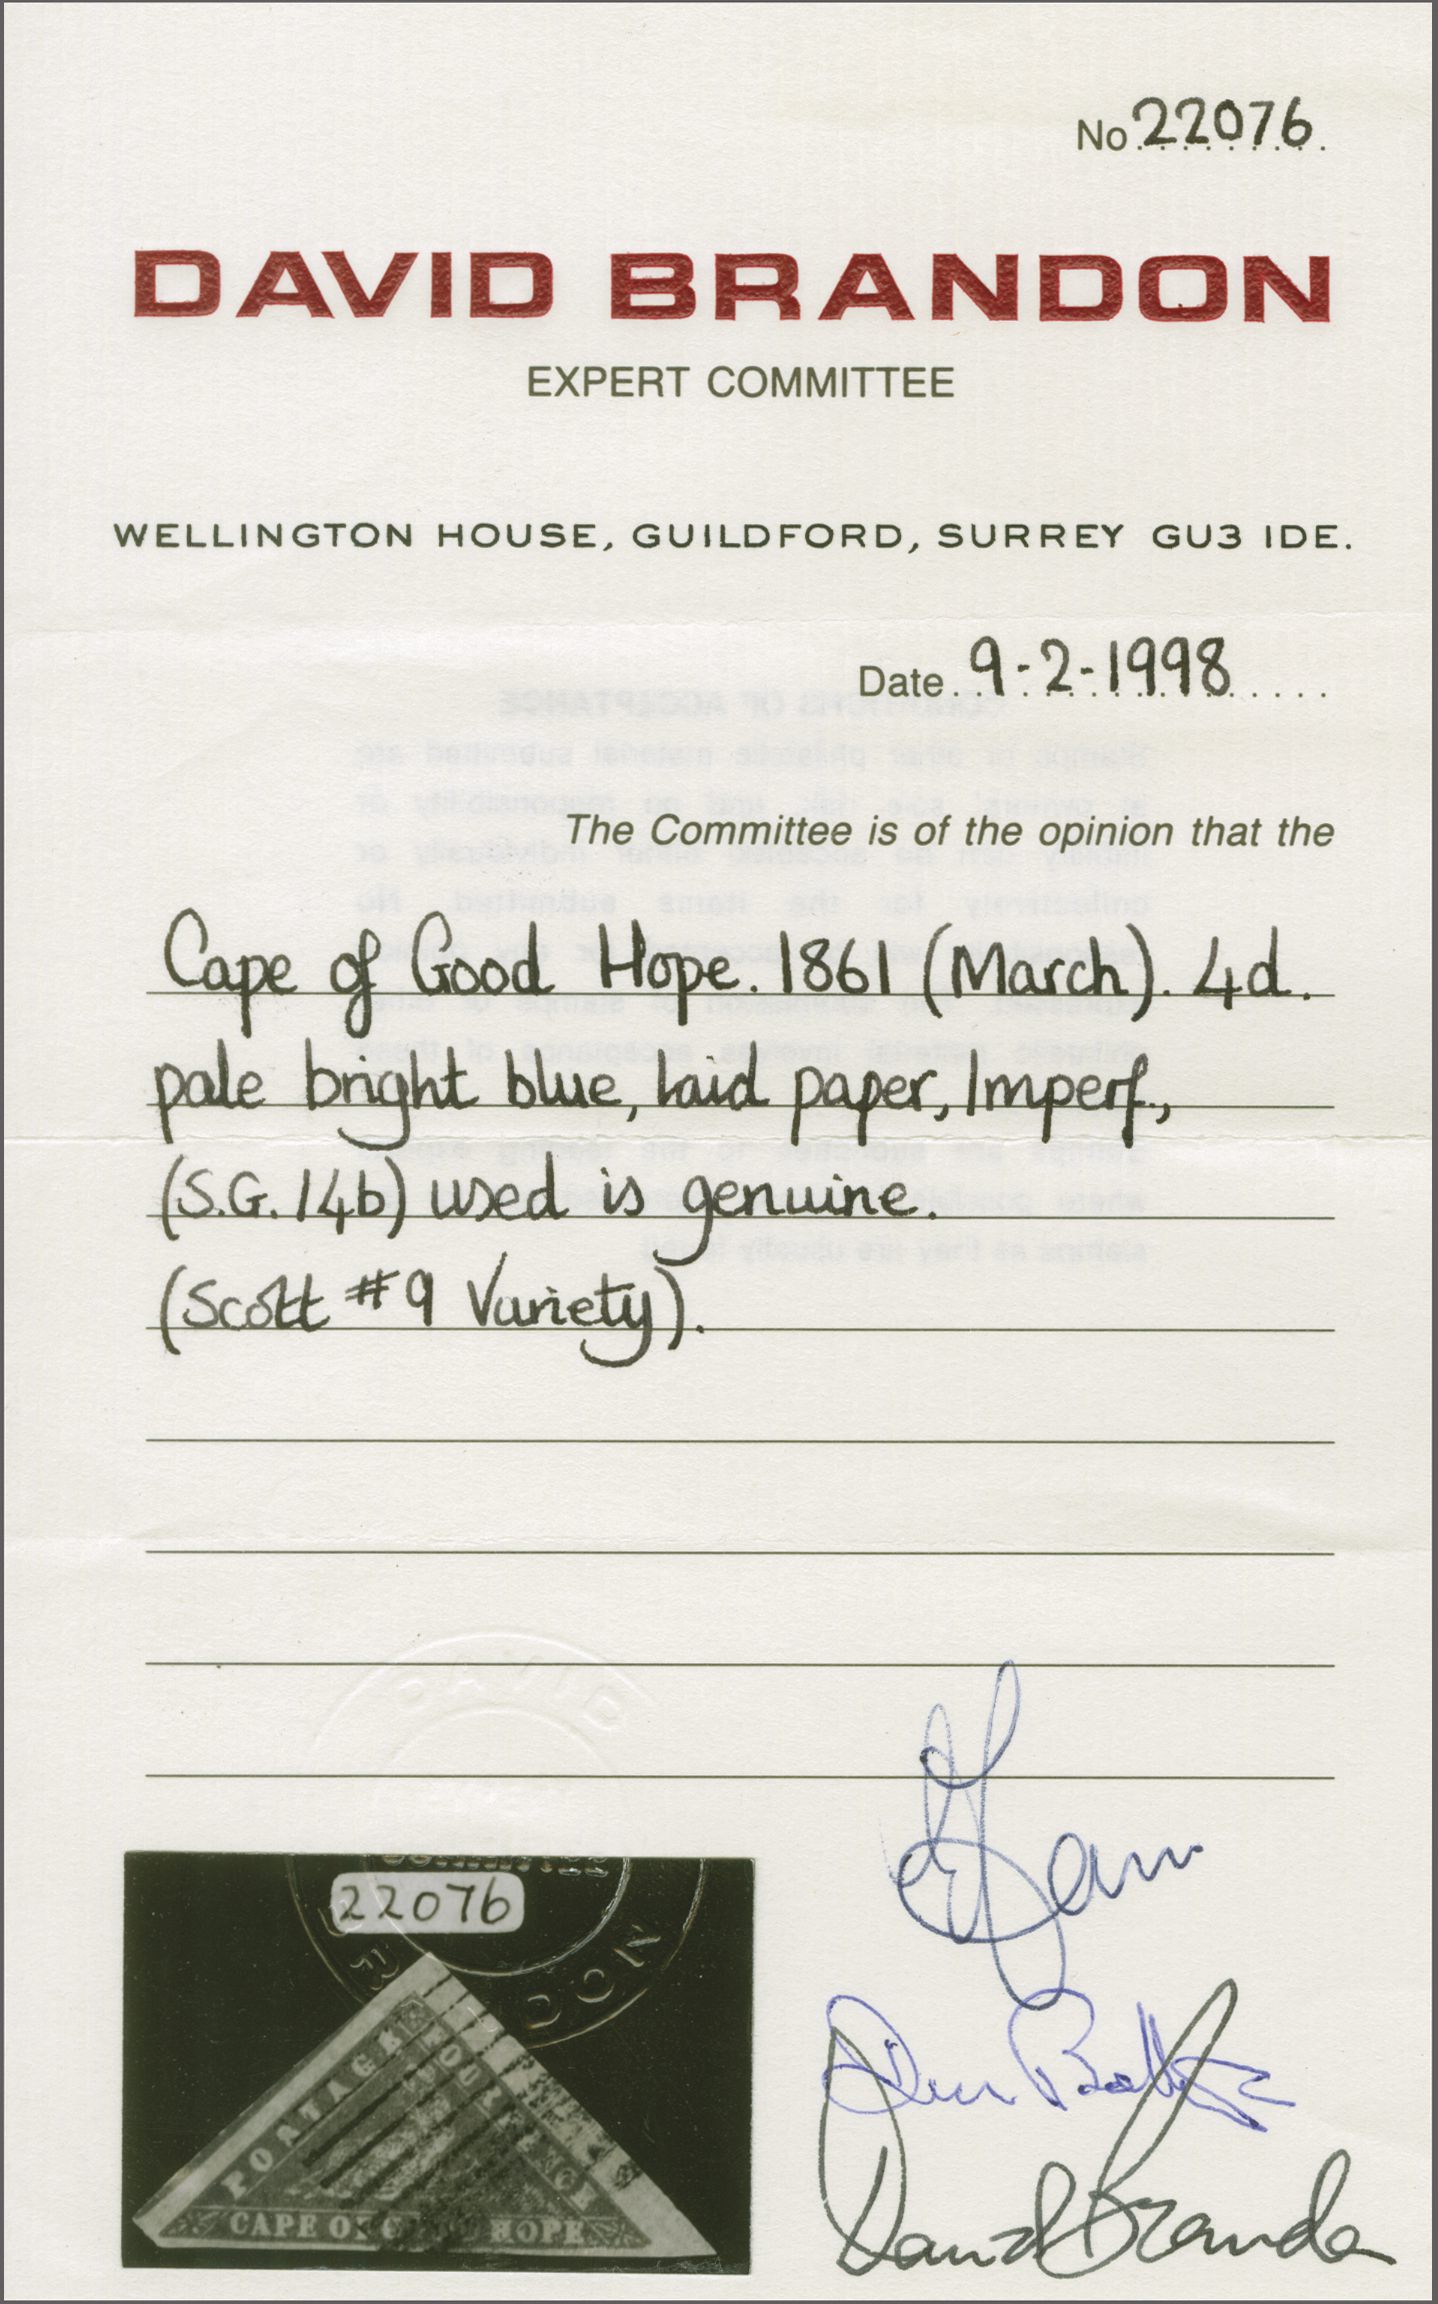 No. 22076
DAVID BRANDON
EXPERT COMMITTEE
WELLINGTON HOUSE, GUILDFORD, SURREY GU3 1DE.
Date. 9-2-1998
The Committee is of the opinion that the
Cape of Good Hope. 1861 (March). 4d.
pale bright blue, laid paper, Imperf.,
(S.G. 14b) used is genuine.
(Scott #9 Variety).
DAVID
COMMITTEE
22076
POSTAGE
CAPE OF GOOD HOPE
David Brandon